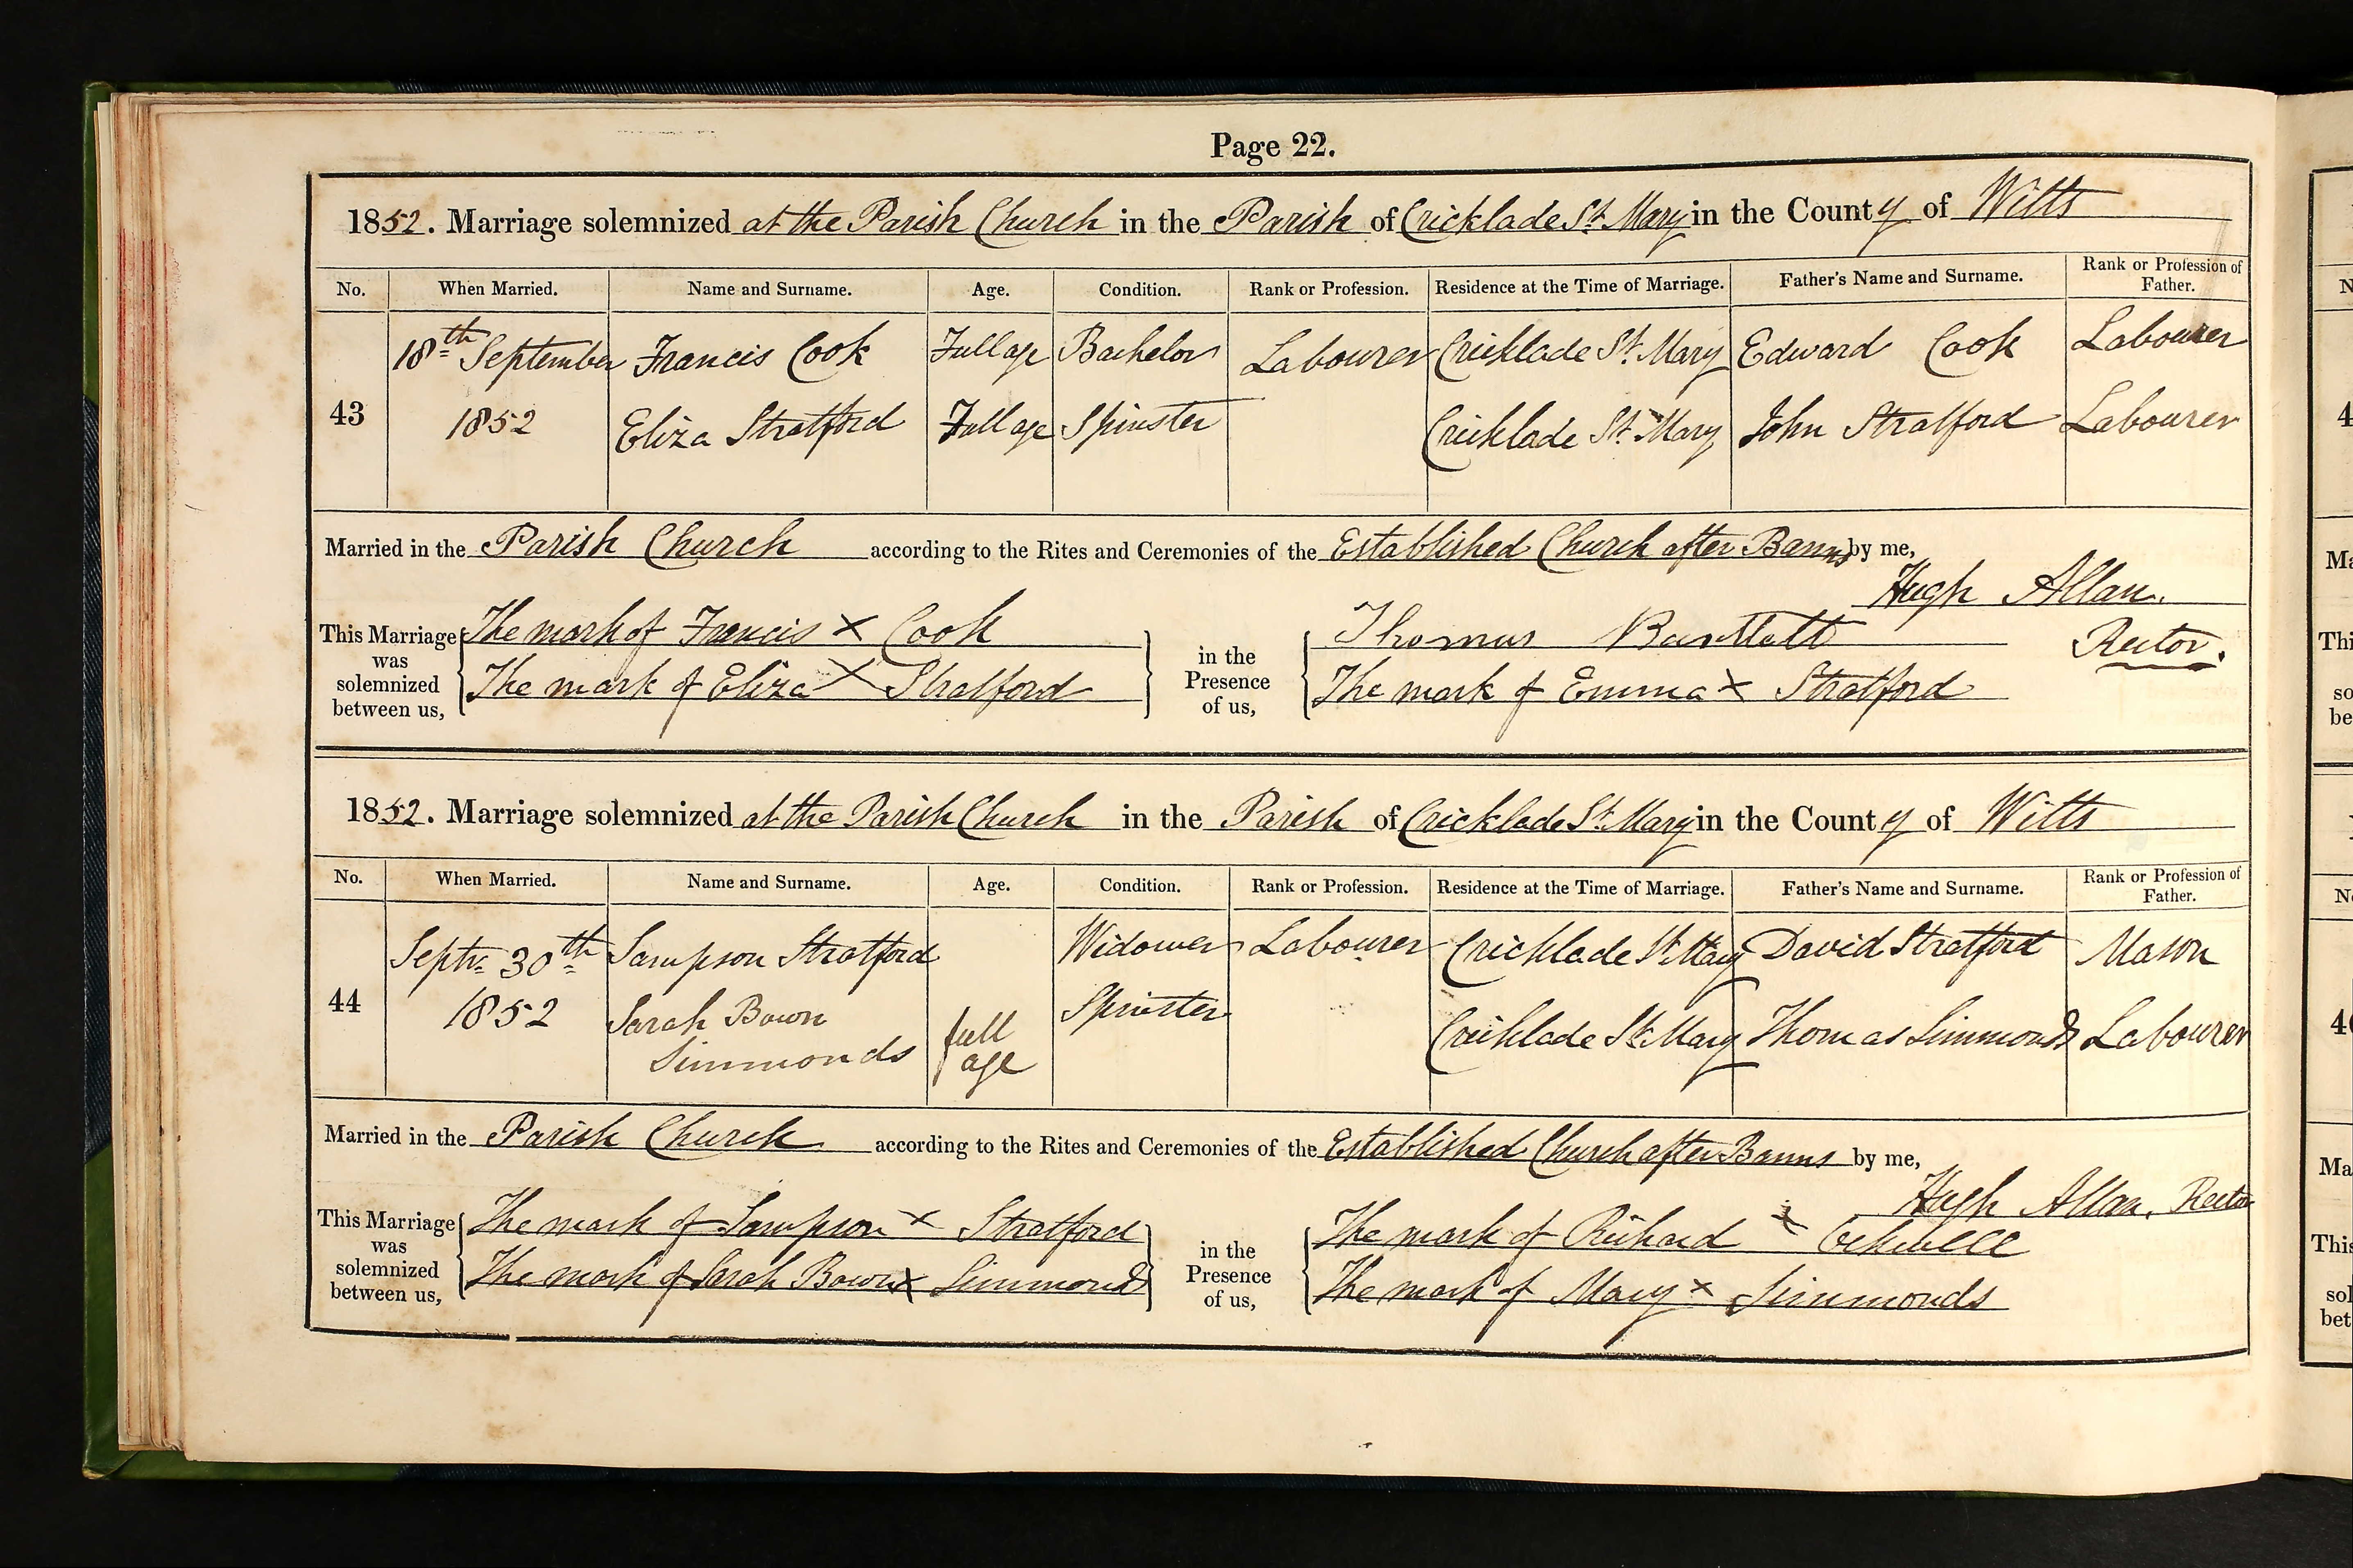 Page 22.
1852. Marriage solemnized at the Parish Church in the Parish of Cricklade St. Mary in the County of Wilts
No. When Married. Name and Surname. Age. Condition. Rank or Profession. Residence at the Time of Marriage. Father's Name and Surname. Rank or Profession of Father.
18th September Francis Cook Full age Bachelor Labourer Cricklade St. Mary Edward Cook Labourer
43 1852 Eliza Stratford Full age Spinster Cricklade St. Mary John Stratford Labourer
Married in the Parish Church according to the Rites and Ceremonies of the Established Church after Banns by me,
Hugh Allan.
Rector.
This Marriage was solemnized between us,
The mark of Francis X Cook
The mark of Eliza X Stratford
in the Presence of us,
Thomas Bartlett
The mark of Emma X Stratford
1852. Marriage solemnized at the Parish Church in the Parish of Cricklade St. Mary in the County of Wilts
No. When Married. Name and Surname. Age. Condition. Rank or Profession. Residence at the Time of Marriage. Father's Name and Surname. Rank or Profession of Father.
Septr. 30th Sampson Stratford Widower Labourer Cricklade St. Mary David Stratford Mason
44 1852 Sarah Bown Simmonds full age Spinster Cricklade St. Mary Thomas Simmonds Labourer
Married in the Parish Church according to the Rites and Ceremonies of the Established Church after Banns by me,
Hugh Allan, Rector
This Marriage was solemnized between us,
The mark of Sampson X Stratford
The mark of Sarah Bown X Simmonds
in the Presence of us,
The mark of Richard X Ockwell
The mark of Mary X Simmonds